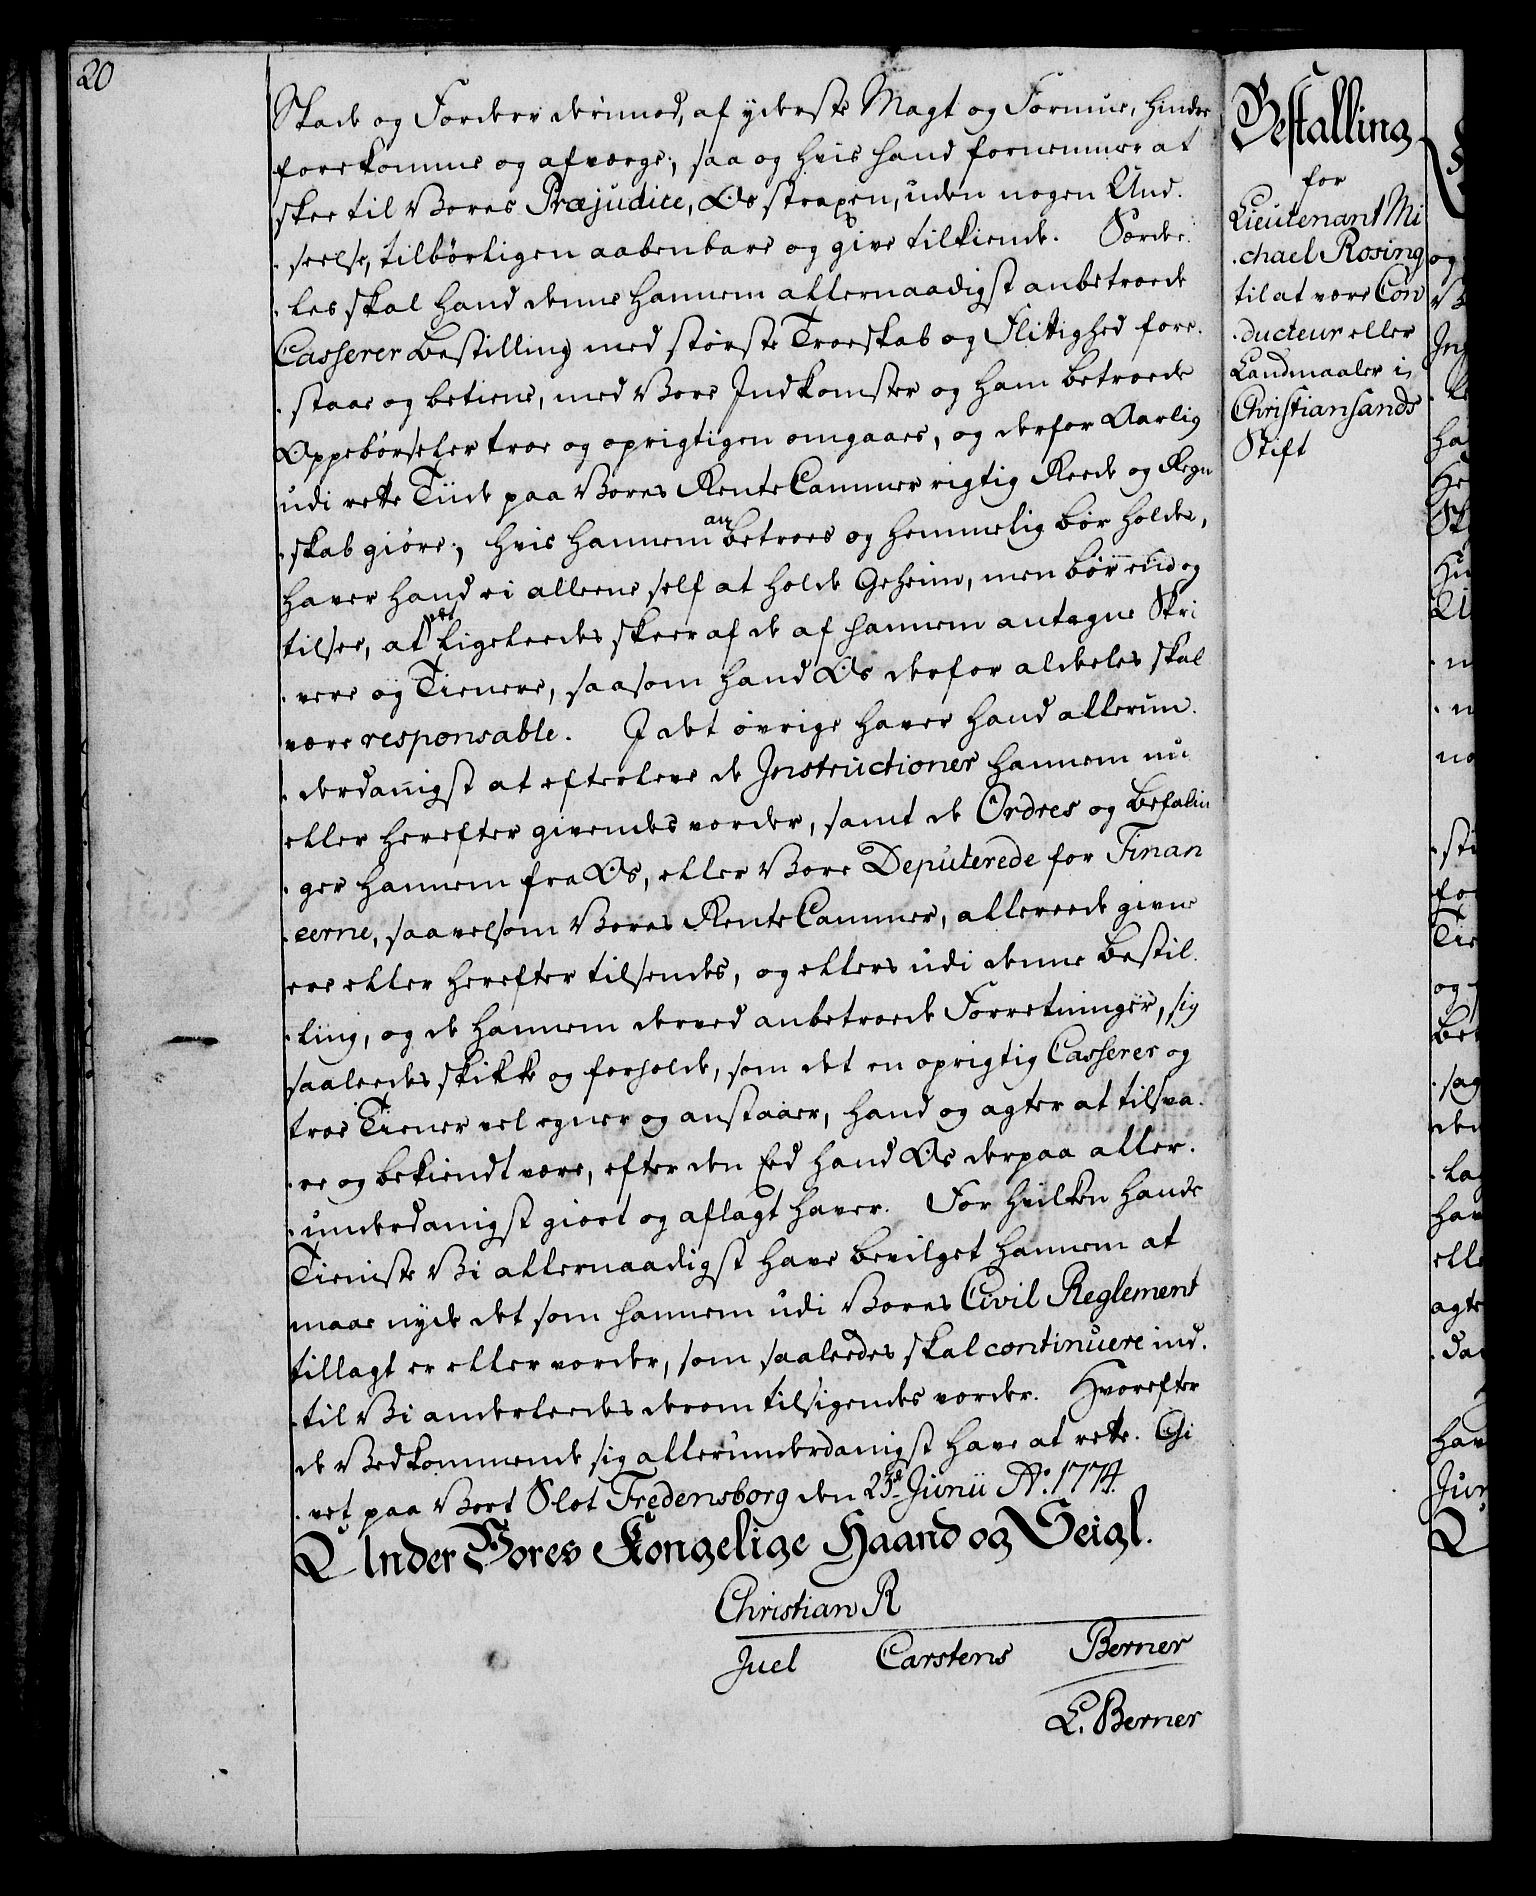 20
Skade og Forderv derimod, af yderste Magt og Formue, hindre
forekomme og afværge, saa og hvis hand fornemmer at
skee til Vores Præjudice, Os straxen, uden nogen Und-
-seelse, tilbørligen aabenbare og give tilkiende. Særde-
-les skal hand denne hannem allernaadigst anbetroede
Casserer Bestilling med største Troeskab og Flittighed fore-
-staae og betiene, med Vore Indkomster og ham betroede
Oppebørseler troe og oprigtigen omgaaes, og derfor Aarlig
udi rette Tiide paa Vores Rente Cammer rigtig Reede og Regn
-skab giøre, hvis hannem anbetroes og hemmelig bør holdes,
haver hand ei alleene self at holde Geheim, men bør end og
tilsee, at det ligeleedes skeer af de af hannem antagne Skri
-vere og Tienere, saasom hand Os derfor aldeles skal
være responsable. I det øvrige haver hand allerun-
-derdanigst at efterleve de Instructioner hannem nu
eller herefter givendes vorder, samt de Ordres og Befalin
-ger hannem fra Os, eller Vore Deputerede for Finan
-cerne, saavelsom Vores Rente Cammer, allereede givne
ere eller herefter tilsendes, og ellers udi denne Bestil-
-ling, og de hannem derved anbetroede Forretninger, sig
saaleedes skikke og forholde, som det en oprigtig Casserer og
troe Tiener vel egner og anstaaer, hand og agter at tilsva-
-re og bekiendt være, efter den Eed hand Os derpaa aller-
-underdanigst giort og aflagt haver. For hvilken hands
Tieniste Vi allernaadigst have bevilget hannem at
maae nyde det som hannem udi Vores Civil Reglement
tillagt er eller vorder, som saaleedes skal continuere ind-
-til Vi anderleedes derom tilsigendes vorder. Hvorefter
de Vedkommende sig allerunderdanigst have at rette. Gi
-vet paa Vort Slot Fredensborg den 23de Junii Ao. 1774.
Under Vores Kongelige Haand og Seigl.
Christian R
Juel Carstens Berner
L. Berner
Bestalling
for
Lieutenant Mi
-chael Rosing
til at være Con
-ducteur eller
Landmaaler i
Christiansands
Stift